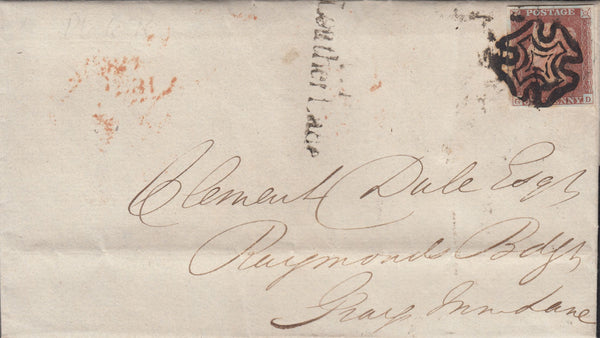 POSTAGE
NNY
D
Leather Lane
Clement Dale Esqr
Raymonds Bdgs
Grays Inn Lane